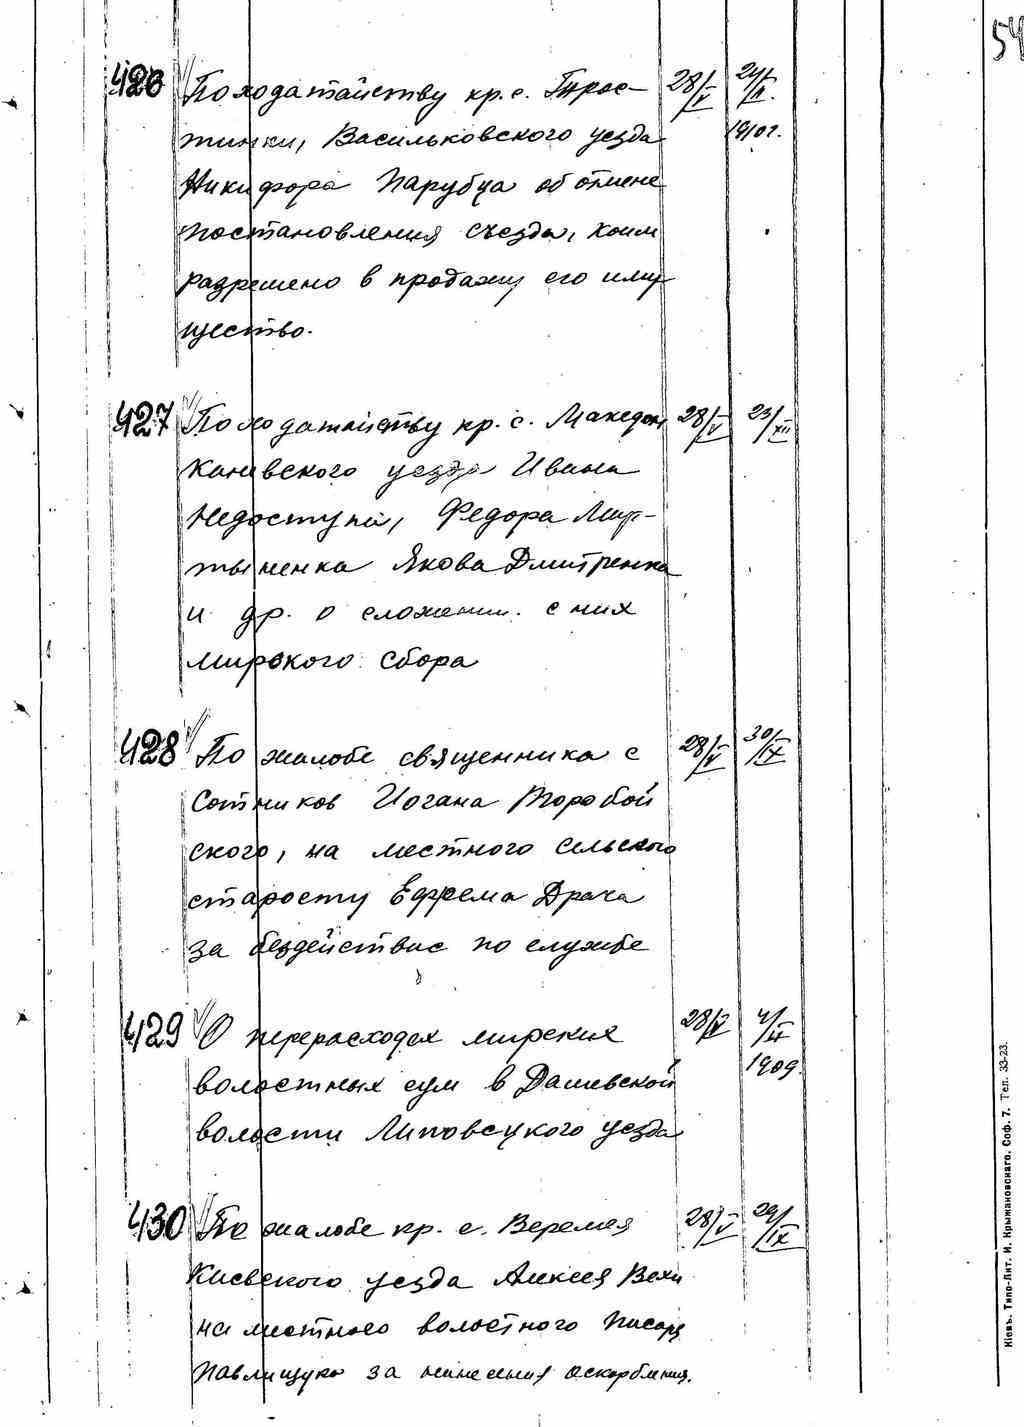 54
426 По ходатайству кр. с. Трос- 28/V 24/II.
тинки, Васильковского уезда 1910г.
Никифора Парубца об отмене
постановления съезда, коим
разрешено в продажу его иму
щество.
427 По ходатайству кр. с. Македон 28/V 23/XII
Каневского уезда Ивана
Недоступа, Федора Мар-
тыненка Якова Дмитренка
и др. о сложении с них
мирского сбора
428 По жалобе священника с 28/V 30/IX
Сотников Иогана Торобой
ского, на местного сельского
старосту Ефрема Драча
за бездействие по службе
429 О перерасходах мирских 28/V 4/II
волостных сум в Дашевской 1909.
волости Липовецкого уезда
430 По жалобе кр. с. Веремея 28/V 29/IX
Киевского уезда Алексея
на местного волостного писаря
Павлищука за нанесения оскорбления.
Кіевъ. Типо-Лит. И. Крыжановскаго. Соф. 7. Тел. 33-23.